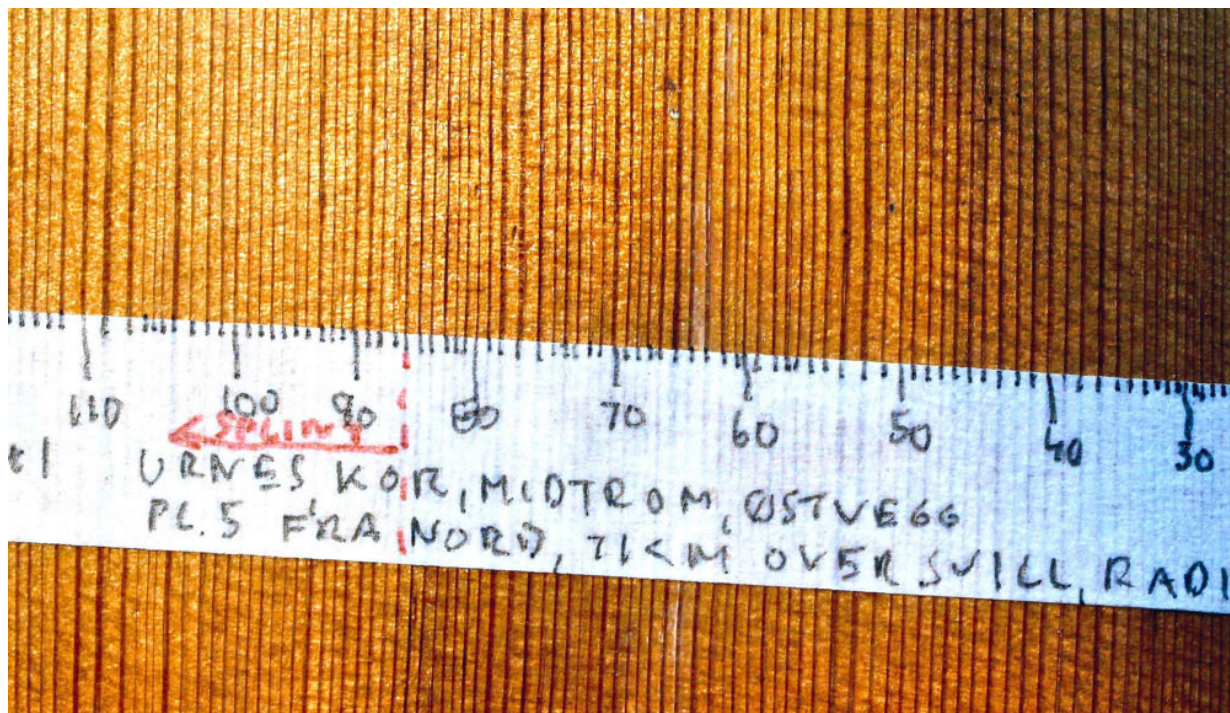 110 100 90 80 70 60 50 40 30
SPLINT
URNES KOR, MIDTROM, ØSTVEGG
PL. 5 FRA NORD, 71 CM OVER SVILL, RADI